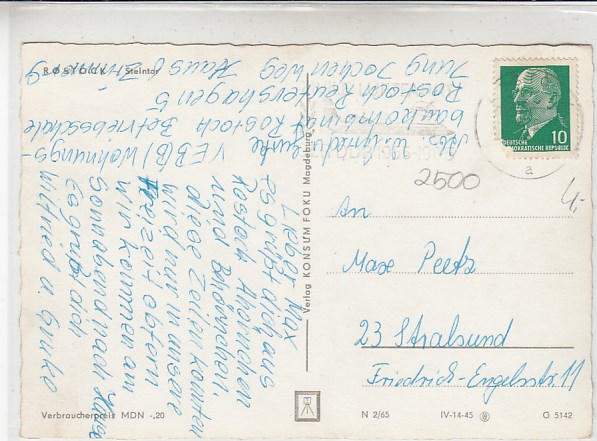 ROSTOCK / Steintor
Abs. Wilfried Gunke
VEB(B) Wohnungs-
baukombinat Rostock Betriebsschule
Rostock Reutershagen 5
Jung Jochen Weg
Haus 6 Zimmer 9
Lieber Max
es grüßt dich aus
Rostock
und Brüderchen.
diese Zeilen konnten
wird nur in unsere
Freizeit
wir kommen am
Sonnabend nach Hause
Es grüßt dich
Wilfried u. Gunke
Verlag KONSUM FOKU Magdeburg
10
DEUTSCHE
DEMOKRATISCHE REPUBLIK
a
2500
4,-
An
Max Peetz
23 Stralsund
Friedrich-Engelsstr. 11
Verbraucherpreis MDN -,20
N 2/65 IV-14-45 G 5142